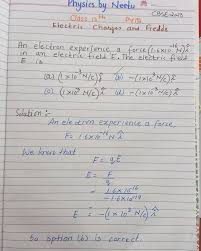 Physics by Neetu
CBSE-2023
Class 12th
Electric Charges and Fields
An electron experience a force (1.6×10⁻¹⁶ N) î
in an electric field E. The electric field
E is
(a) (1×10³ N/C) î (b) -(1×10³ N/C) î
(c) (1×10⁻³ N/C) î (d) -(1×10⁻³ N/C) î
Solution:-
An electron experience a force,
F = 1.6×10⁻¹⁶ N î
We know that
F = qE
E = F/q
= 1.6×10⁻¹⁶ / -1.6×10⁻¹⁹
E = -(1×10³ N/C) î
So option (b) is correct.